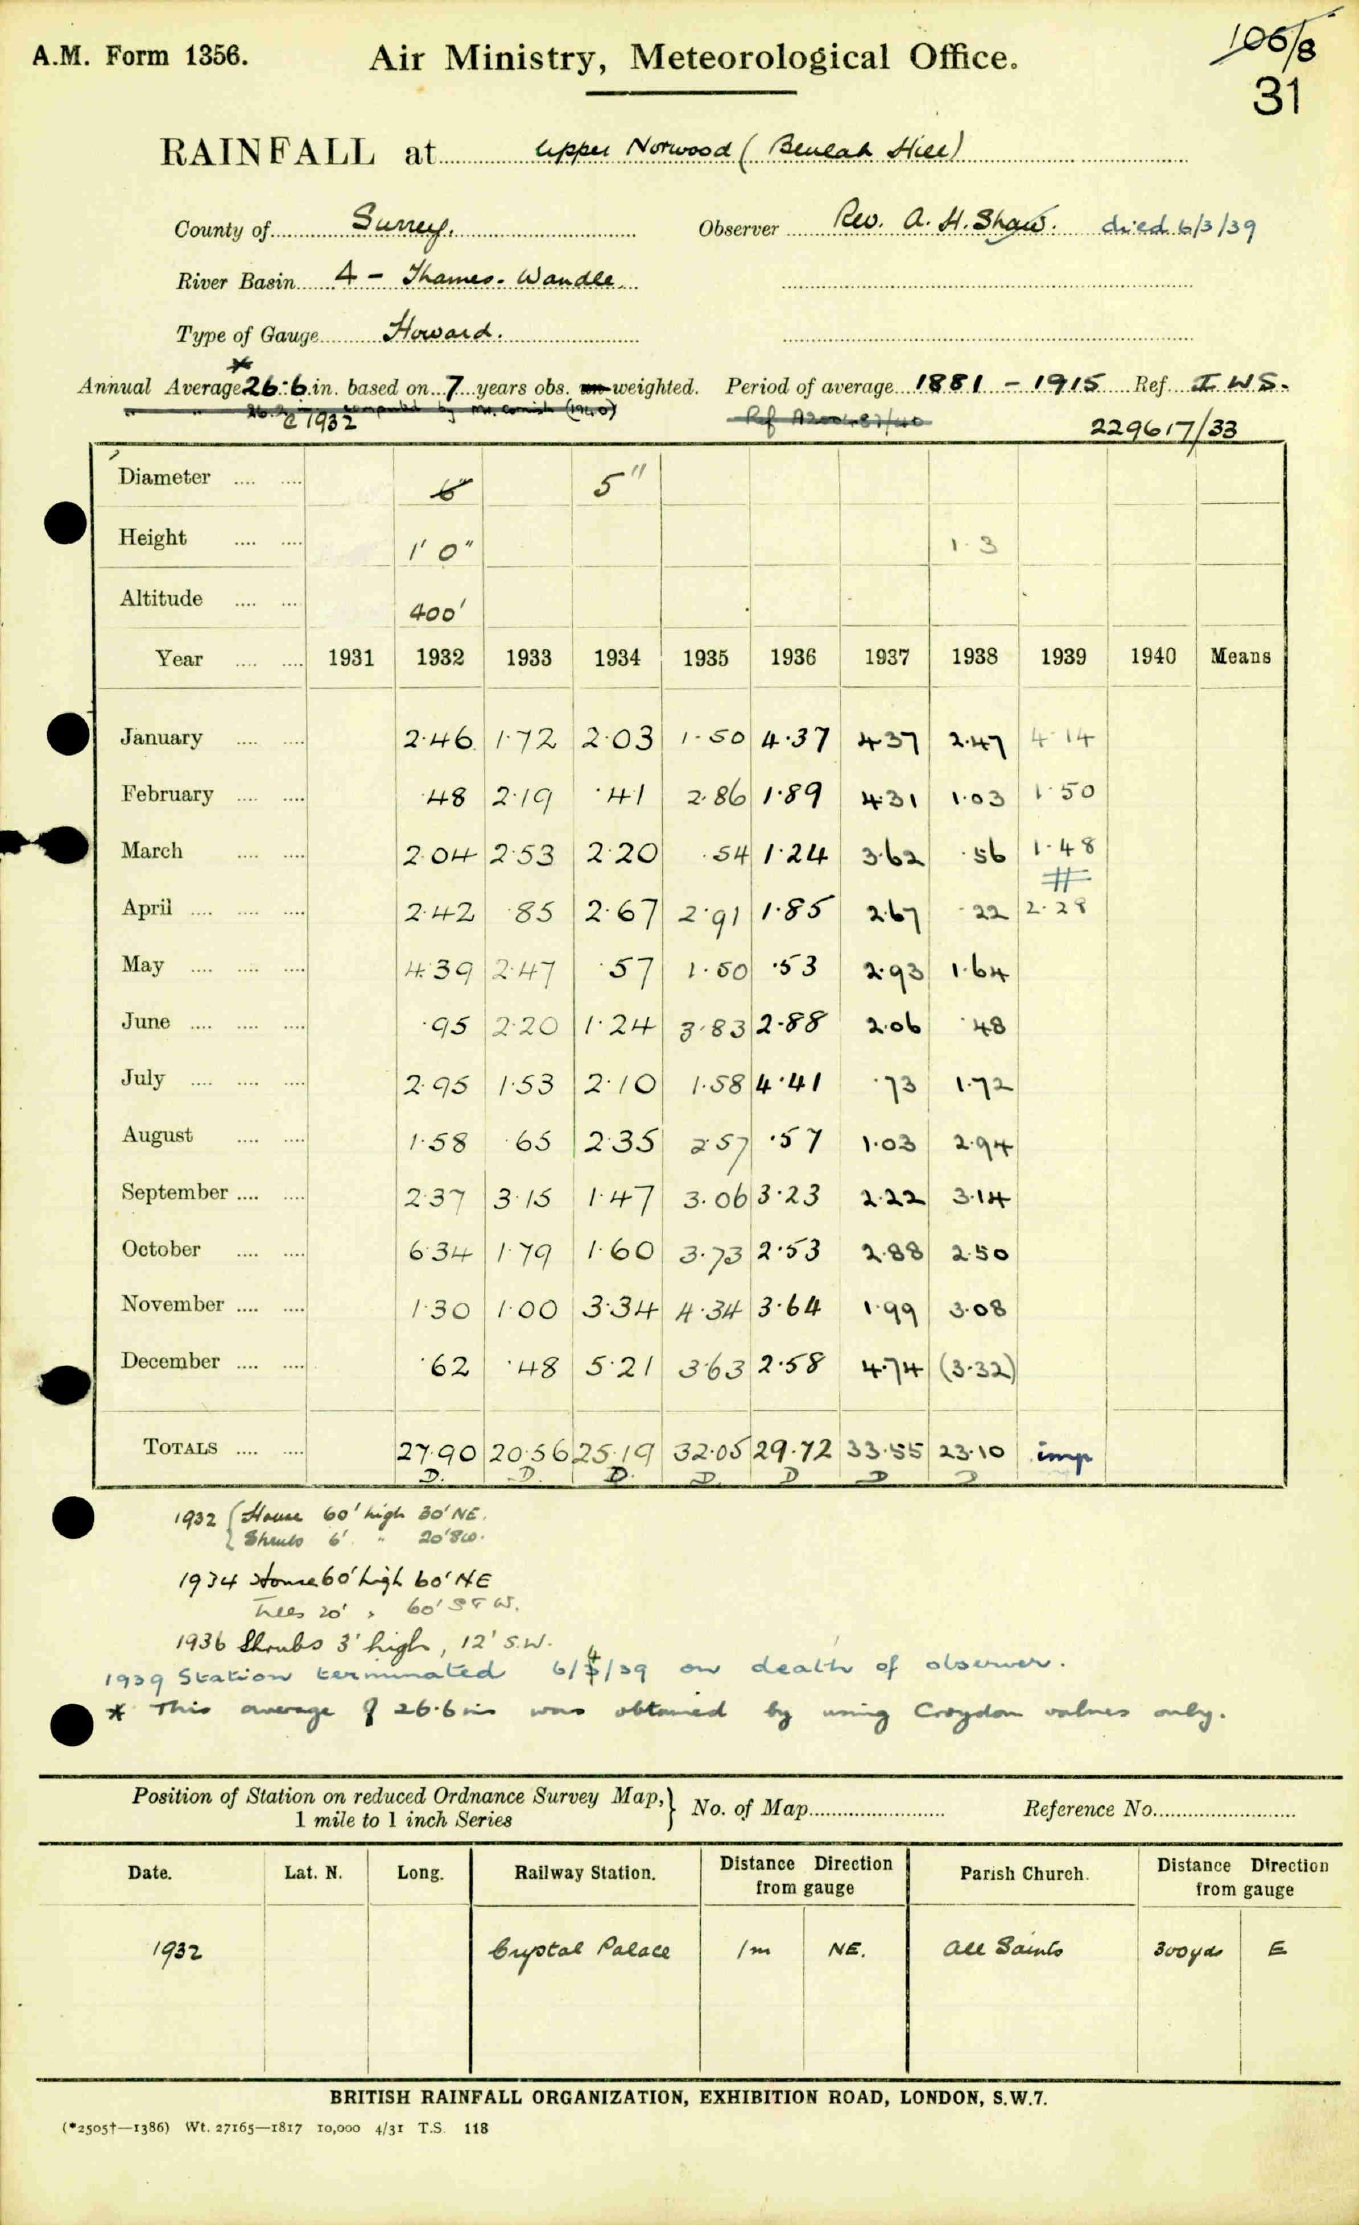 A.M. Form 1356.
Air Ministry, Meteorological Office.
106/8
31
RAINFALL at Upper Norwood (Beulah Hill)
County of Surrey. Observer Rev. A. H. Shaw. died 6/3/39
River Basin 4 - Thames - Wandle
Type of Gauge Howard.
Annual Average * 26.6 in. based on 7 years obs. un weighted. Period of average 1881 - 1915 Ref I W S.
computed by Mr. Cornish (1940)
C 1932
229617/33
Diameter .... .... 6" 5"
Height .... .... 1' 0" 1.3
Altitude .... .... 400'
Year .... .... 1931 1932 1933 1934 1935 1936 1937 1938 1939 1940 Means
January .... .... 2.46 1.72 2.03 1.50 4.37 4.37 2.47 4.14
February .... .... .48 2.19 .41 2.86 1.89 4.31 1.03 1.50
March .... .... 2.04 2.53 2.20 .54 1.24 3.62 .56 1.48
#
April .... .... .... 2.42 .85 2.67 2.91 1.85 2.67 .22 2.28
May .... .... .... 4.39 2.47 .57 1.50 .53 2.93 1.64
June .... .... .... .95 2.20 1.24 3.83 2.88 2.06 .48
July .... .... .... 2.95 1.53 2.10 1.58 4.41 .73 1.72
August .... .... 1.58 .65 2.35 2.57 .57 1.03 2.94
September .... .... 2.37 3.15 1.47 3.06 3.23 2.22 3.14
October .... .... 6.34 1.79 1.60 3.73 2.53 2.88 2.50
November .... .... 1.30 1.00 3.34 4.34 3.64 1.99 3.08
December .... .... .62 .48 5.21 3.63 2.58 4.74 (3.32)
TOTALS .... .... 27.90 20.56 25.19 32.05 29.72 33.55 23.10 imp
D. D. D. D. D D D
1932 { House 60' high 30' NE.
Shrubs 6' " 20' SW.
1934 House 60' high 60' NE
Trees 20' " 60' S & W.
1936 Shrubs 3' high, 12' S.W.
1939 Station terminated 6/4/39 on death of observer.
* This average of 26.6 ins was obtained by using Croydon values only.
Position of Station on reduced Ordnance Survey Map, } No. of Map Reference No.
1 mile to 1 inch Series
Date. Lat. N. Long. Railway Station. Distance Direction from gauge Parish Church. Distance Direction from gauge
1932 Crystal Palace 1m NE. All Saints 300yds E
BRITISH RAINFALL ORGANIZATION, EXHIBITION ROAD, LONDON, S.W.7.
(*2505†—1386) Wt. 27165—1817 10,000 4/31 T.S. 118